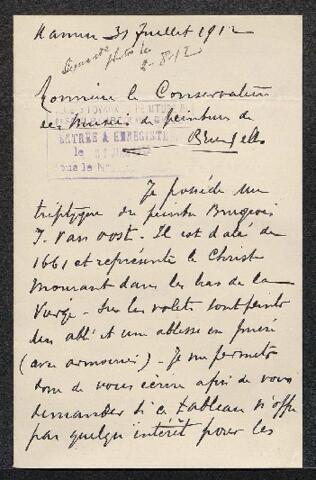 Namur 31 Juillet 1912
Demandé
photo le
2-8-12
Monsieur le Conservateur
des Musées de peinture de
Bruxelles
ENTRÉE & ENREGISTR
le
sous le N°
Je possède un
triptyque du peintre Brugeois
J. Van oost. Il est daté de
1661 et représente le Christ
Mourant dans les bras de la
Vierge. Sur les volets sont peints
un abbé et une abbesse en prière
(avec armoiries). Je me permets
donc de vous écrire afin de vous
demander si ce tableau n'offre
pas quelque intérêt pour les